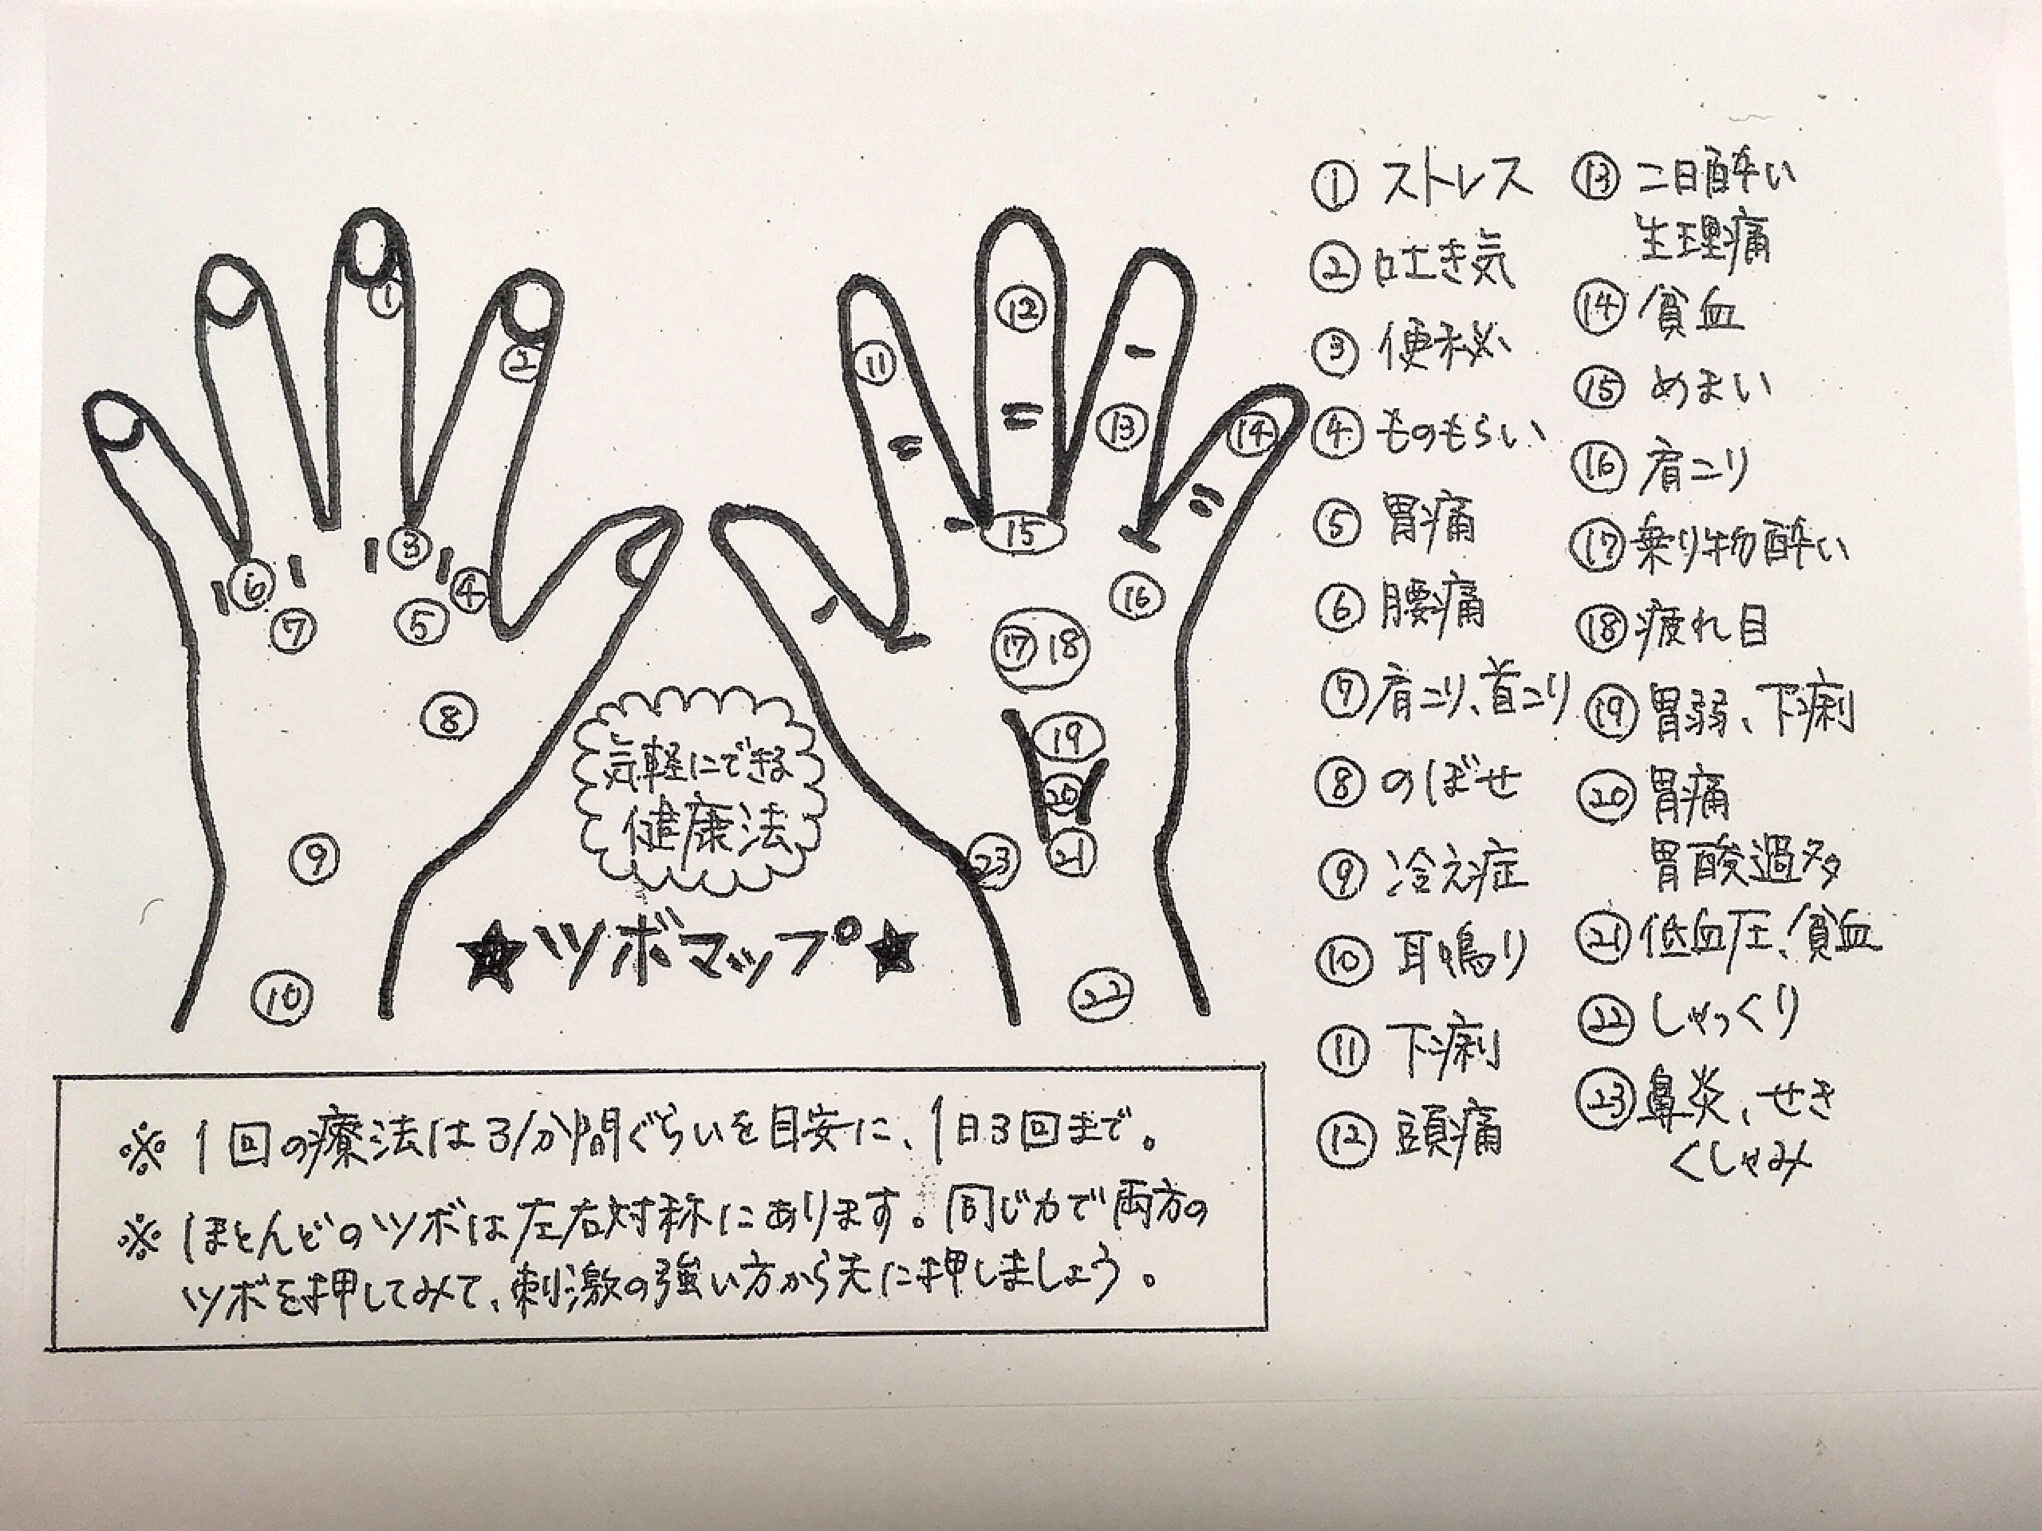 ① ストレス
② 吐き気
③ 便秘
④ ものもらい
⑤ 胃痛
⑥ 腰痛
⑦ 肩こり、首こり
⑧ のぼせ
⑨ 冷え症
⑩ 耳鳴り
⑪ 下痢
⑫ 頭痛
⑬ 二日酔い
生理痛
⑭ 貧血
⑮ めまい
⑯ 肩こり
⑰ 乗り物酔い
⑱ 疲れ目
⑲ 胃弱、下痢
⑳ 胃痛
胃酸過多
㉑ 低血圧、貧血
㉒ しゃっくり
㉓ 鼻炎、せき
くしゃみ
①
②
③
④
⑤
⑥
⑦
⑧
⑨
⑩
⑪
⑫
⑬
⑭
⑮
⑯
⑰ 18
⑲
⑳
㉑
㉒
㉓
気軽にできる
健康法
★ツボマップ★
※ 1回の療法は3分間ぐらいを目安に、1日3回まで。
※ ほとんどのツボは左右対称にあります。同じ力で両方の
ツボを押してみて、刺激の強い方から先に押しましょう。